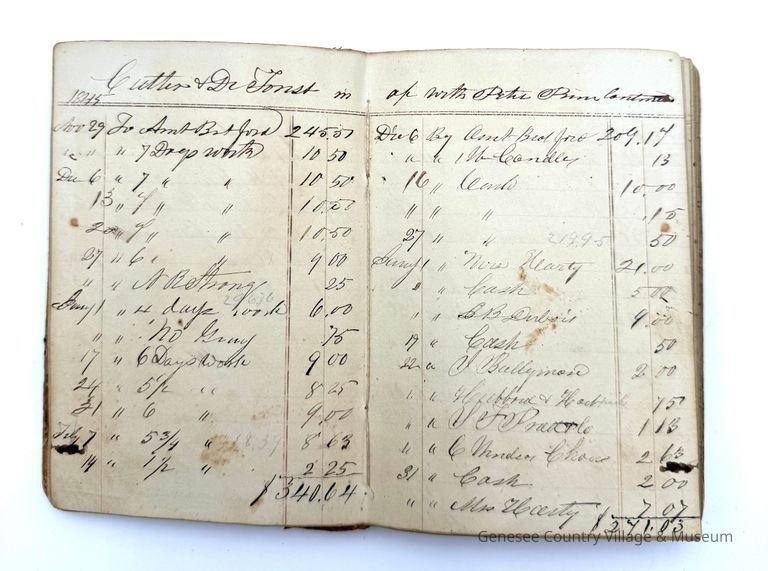 Cutler & De Forist in
1845
Nov 29 To Amt Brt ford 245.51
" " " 7 Days work 10 50
Dec 6 " 7 " " 10 50
13 " 7 " 10.50
20 " 7 " 10,50
27 " 6 " 9 00
" " A B Strong 25
Jany 1 " 4 days work 6.00
" " No Gray .75
17 " 6 Days Work 9 00
24 " 5 1/2 " " 8 25
31 " 6 " 9.00
Feby 7 " 5 3/4 " 8 63
14 " 1 1/2 " 2 25
$340.64
op with Peter
Dec 6 By Amt Brot ford 209.17
" " 1 lb Candles 13
16 " Cash 10.00
" " " .15
27 " " 219.95 50
Jany 1 " Mrs Hearty 21.00
" " Cash 5 00
" L B Dubois 9.00
17 " Cash 50
22 " J Bullymore 2 00
" Hibbard & 75
" " 1 13
" C 2 63
31 " Cash 2 00
" " Mrs Hearty 7 07
$271.03
Genesee Country Village & Museum